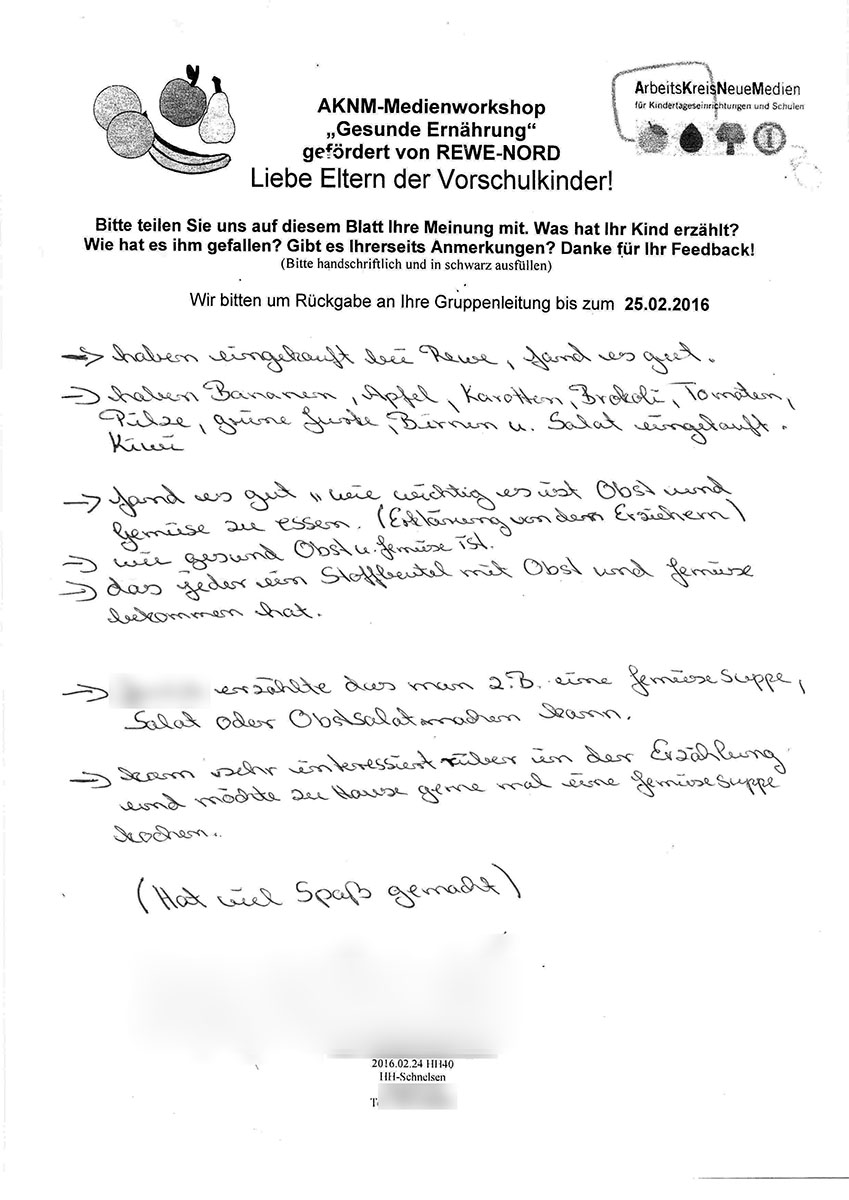 AKNM-Medienworkshop
„Gesunde Ernährung“
gefördert von REWE-NORD
ArbeitsKreisNeueMedien
für Kindertageseinrichtungen und Schulen
Liebe Eltern der Vorschulkinder!
Bitte teilen Sie uns auf diesem Blatt Ihre Meinung mit. Was hat Ihr Kind erzählt?
Wie hat es ihm gefallen? Gibt es Ihrerseits Anmerkungen? Danke für Ihr Feedback!
(Bitte handschriftlich und in schwarz ausfüllen)
Wir bitten um Rückgabe an Ihre Gruppenleitung bis zum 25.02.2016
→ haben eingekauft bei Rewe, fand es gut.
→ haben Bananen, Apfel, Karotten, Brokoli, Tomaten,
Pilze, grüne Gurke, Birnen u. Salat eingekauft.
Kiwi
→ fand es gut „wie wichtig es ist Obst und
Gemüse zu essen. (Erklärung von den Erziehern)
→ wie gesund Obst u. Gemüse ist.
→ das jeder ein Stoffbeutel mit Obst und Gemüse
bekommen hat.
→ erzählte das man z.B. eine Gemüsesuppe,
Salat oder Obstsalat machen kann.
→ kam sehr interessiert rüber in der Erzählung
und möchte zu Hause gerne mal eine Gemüsesuppe
kochen.
(Hat viel Spaß gemacht)
2016.02.24 HH40
HH-Schnelsen